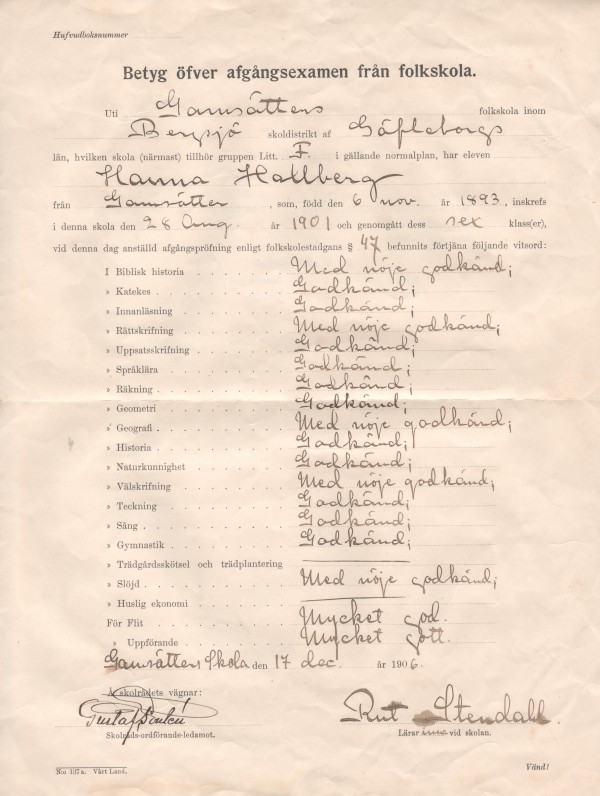 Hufvudboksnummer
Betyg öfver afgångsexamen från folkskola.
Uti Gamsättens folkskola inom
Bergsjö skoldistrikt af Gäfleborgs
län, hvilken skola (närmast) tillhör gruppen Litt. F. i gällande normalplan, har eleven
Hanna Hallberg
från Gamsätter, som, född den 6 nov. år 1893, inskrefs
i denna skola den 28 Aug. år 1901 och genomgått dess sex klass(er),
vid denna dag anställd afgångspröfning enligt folkskolestadgans § 47 befunnits förtjäna följande vitsord:
I Biblisk historia . . . . . . . Med nöje godkänd;
» Katekes . . . . . . . . . Godkänd;
» Innanläsning . . . . . . . . Godkänd;
» Rättskrifning . . . . . . . . Med nöje godkänd;
» Uppsatsskrifning . . . . . . . Godkänd;
» Språklära . . . . . . . . . Godkänd;
» Räkning . . . . . . . . . Godkänd;
» Geometri . . . . . . . . . Godkänd;
» Geografi . . . . . . . . . Med nöje godkänd;
» Historia . . . . . . . . . Godkänd;
» Naturkunnighet . . . . . . . Godkänd;
» Välskrifning . . . . . . . . Med nöje godkänd;
» Teckning . . . . . . . . . Godkänd;
» Sång . . . . . . . . . . Godkänd;
» Gymnastik . . . . . . . . . Godkänd;
» Trädgårdsskötsel och trädplantering
» Slöjd . . . . . . . . . . Med nöje godkänd;
» Huslig ekonomi . . . . . . .
För Flit . . . . . . . . . Mycket god.
» Uppförande . . . . . . . . Mycket gott.
Gamsättens Skola den 17 dec. år 1906.
Å skolrådets vägnar:
Gustaf Rut Stendahl.
Skolråds-ordförande-ledamot. Lärarinna vid skolan.
N:o 137 a. Vårt Land. Vänd!